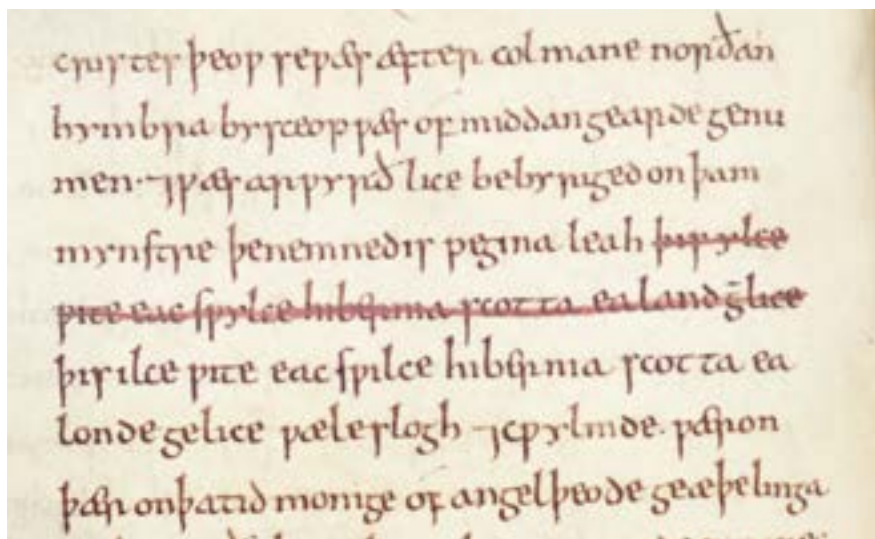 cristes þeoƿ seƿæs æfter colmane norðan
hymbra bysceop ƿæs of middangearde genu
men· ⁊ƿæs arƿyrðlice bebyriged on þam
mynstre þenemned is pegina leah þis ylce
ƿite eac sƿylce hibernia scotta ealand g̅lice
þis ilce ƿite eac sƿilce hibernia scotta ea
londe gelice ƿæle slogh ⁊cƿylmde. ƿæron
þær onþatid monige of angelþeode geæþelinga